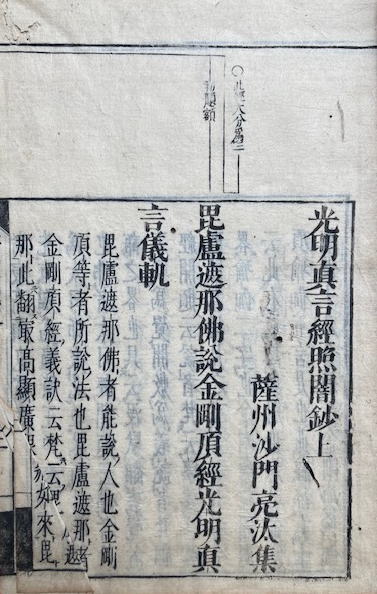 ○此經大分爲二
初題額
光明真言經照闇鈔上
薩州沙門亮汰集
毘盧遮那佛說金剛頂經光明真
言儀軌
毘盧遮那佛者能說人也金剛
頂等者所說法也毘盧遮那者
金剛頂經義訣云梵云毘盧遮
那此翻最高顯廣眼藏如來毘